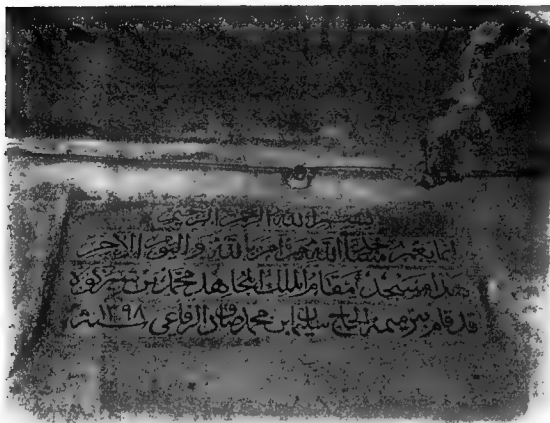 بسم الله الرحمن الرحيم
انما يعمر مساجد الله من آمن بالله واليوم الآخر
هذا مسجد ومقام الملك المجاهد محمد بن
قد قام بترميمه الحاج سليمان بن محمد صادق الرفاعي سنة ١٣٩٨